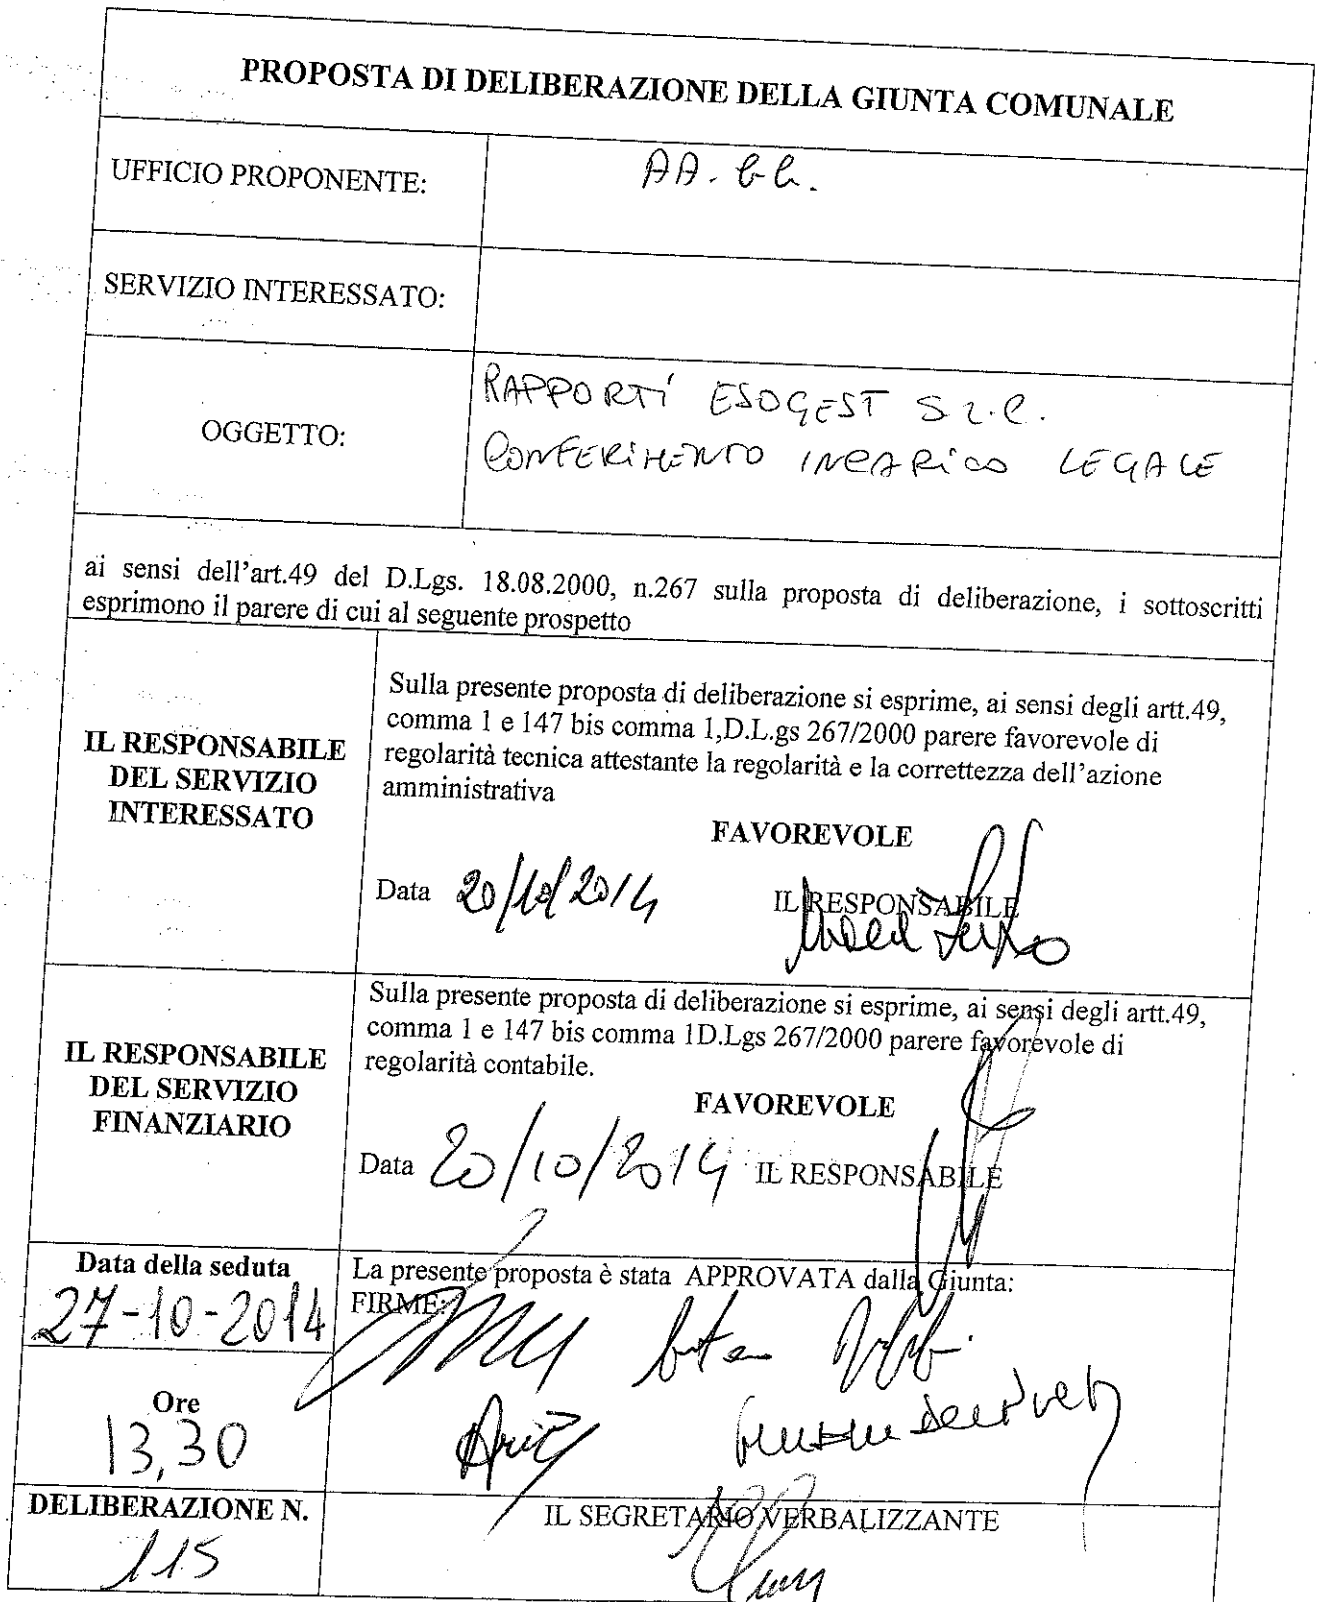 PROPOSTA DI DELIBERAZIONE DELLA GIUNTA COMUNALE
UFFICIO PROPONENTE:
AA.
SERVIZIO INTERESSATO:
OGGETTO:
RAPPORTI ESOGEST S.r.l.
CONFERIMENTO INCARICO LEGALE
ai sensi dell'art.49 del D.Lgs. 18.08.2000, n.267 sulla proposta di deliberazione, i sottoscritti
esprimono il parere di cui al seguente prospetto
IL RESPONSABILE
DEL SERVIZIO
INTERESSATO
Sulla presente proposta di deliberazione si esprime, ai sensi degli artt.49,
comma 1 e 147 bis comma 1,D.L.gs 267/2000 parere favorevole di
regolarità tecnica attestante la regolarità e la correttezza dell'azione
amministrativa
FAVOREVOLE
Data 20/10/2014 IL RESPONSABILE
IL RESPONSABILE
DEL SERVIZIO
FINANZIARIO
Sulla presente proposta di deliberazione si esprime, ai sensi degli artt.49,
comma 1 e 147 bis comma 1D.Lgs 267/2000 parere favorevole di
regolarità contabile.
FAVOREVOLE
Data 20/10/2014 IL RESPONSABILE
Data della seduta
27-10-2014
La presente proposta è stata APPROVATA dalla Giunta:
FIRME:
Ore
13,30
DELIBERAZIONE N.
115
IL SEGRETARIO VERBALIZZANTE